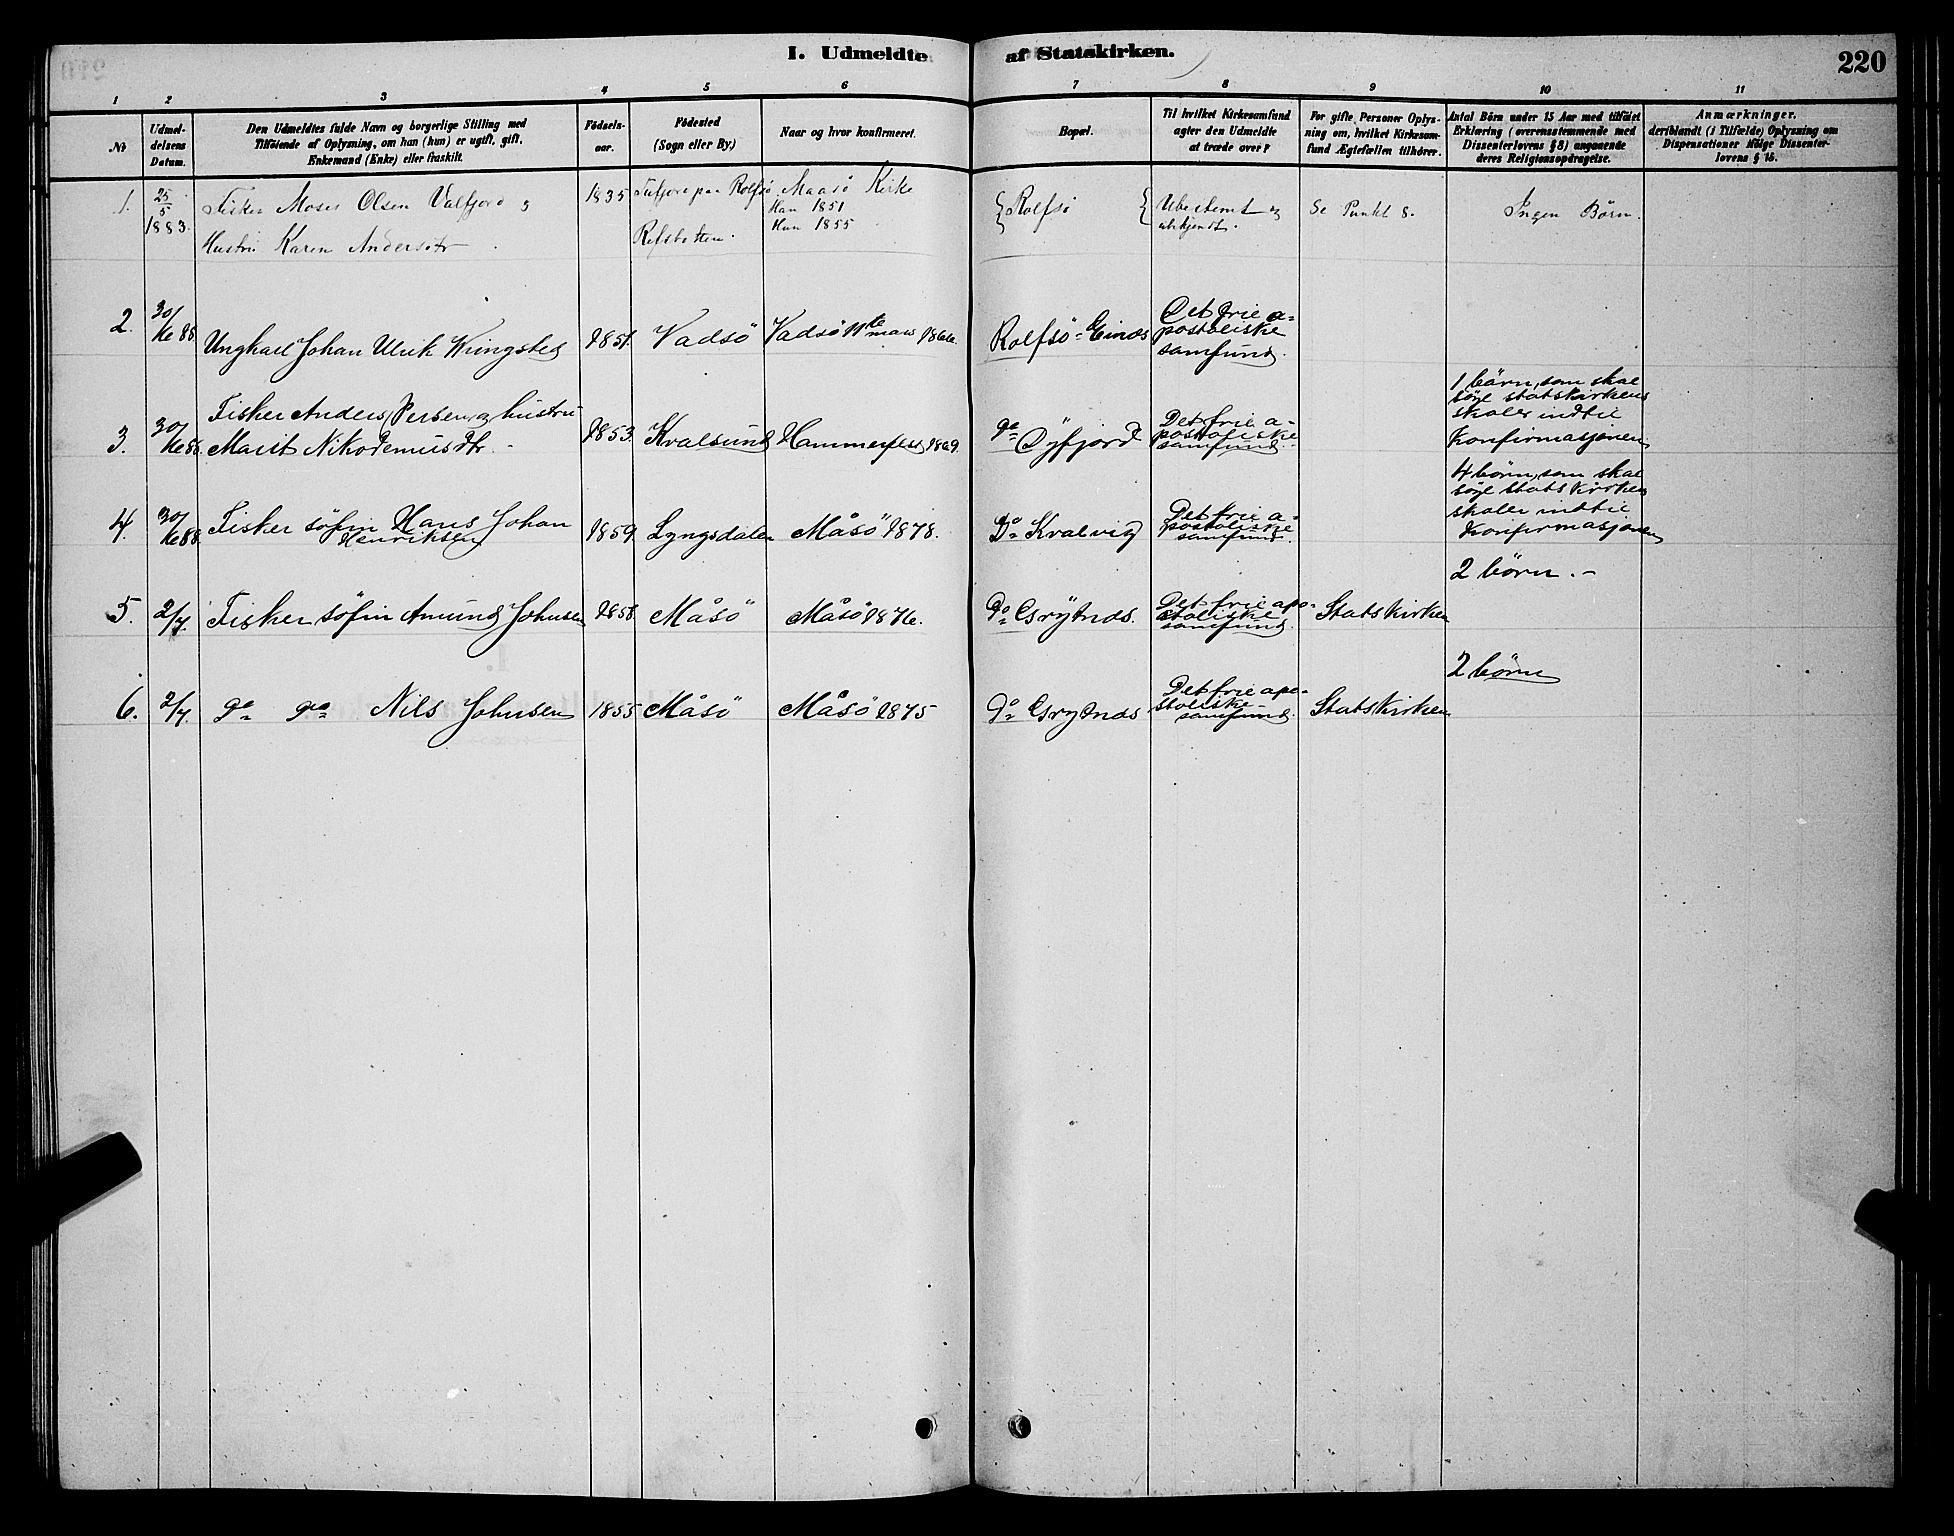 I. Udmeldte af Statskirken.
220
1 2 3 4 5 6 7 8 9 10 11
No
Udmel-
delsens
Datum.
Den Udmeldtes fulde Navn og borgerlige Stilling med
Tilföiende af Oplysning, om han (hun) er ugift, gift,
Enkemand (Enke) eller fraskilt.
Födsels-
aar.
Födested
(Sogn eller By.)
Naar og hvor konfirmeret.
Bopæl.
Til hvilket Kirkesamfund
agter den Udmeldte
at træde over?
For gifte Personer Oplys-
ning om, hvilket Kirkesam-
fund Ægtefællen tilhörer.
Antal Börn under 15 Aar med tilföiet
Erklæring (overensstemmende med
Dissenterlovens § 8) angaaende
deres Religionsopdragelse.
Anmærkninger,
deriblandt (i Tilfælde) Oplysning om
Dispensationer ifölge Dissenter-
lovens § 15.
1. 25/5 1883.
Fisker Moses Olsen Valfjord og
Hustru Karen Andersdtr.
1835
Tufjord paa Rolfsö
Refsbotten.
Maasö Kirke
Han 1851
Hun 1855
Rolfsö
Ubestemt og
ubekjendt.
Se Punkt 8.
Ingen Börn.
2. 30/ 88
Ungkarl Johan Ulrik Kringsted
1851. Vadsö
Vadsö 11te mars 1866.
Rolfsö-Einnes
Det frie a-
postoliske
samfund.
3. 30/ 88.
Fisker Anders Persen og hustru
Marit Nikodemusdtr.
1853. Kvalsund Hammerfest 1869.
Do Dyfjord
Det frie a-
postoliske
samfund.
1 börn, som skal
söge statskirkens
skoler indtil
konfirmasjonen
4. 30/ 88.
Fisker söfin Hans Johan
Henriksen
1859. Lyngsdalen Måsö 1878.
Do Kvalvig
Det frie a-
postoliske
samfund.
4 börn, som skal
söge statskirken
skoler indtil
konfirmasjonen
5. 2/7.
Fisker söfin Amund Johnsen
1858. Måsö Måsö 1876.
Do Grytnds.
Det frie apo-
stoliske
samfund.
Statskirken
2 börn.-
6. 2/7.
Do Do Nils Johnsen
1855 Måsö Måsö 1875
Do Grytnds
Det frie apo-
stoliske-
samfund.
Statskirken
2 börn